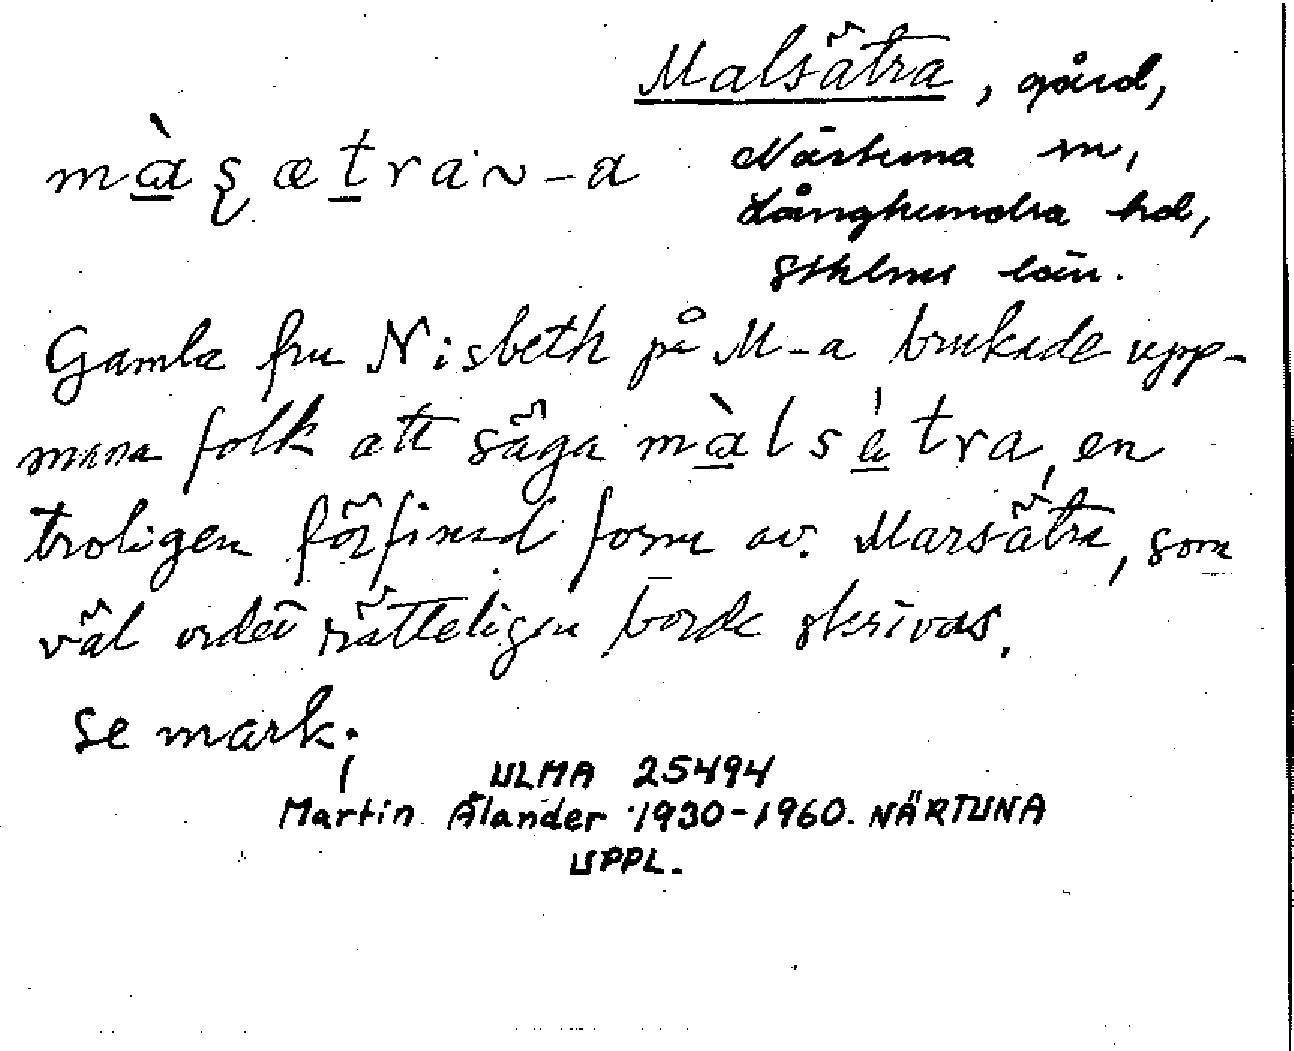 Malsätra, gård,
màşætra ~ -a Närtuna sn,
Långhundra hd,
Sthlms län.
Gamla fru Nisbeth på M-a brukade upp-
mana folk att säga màlsétra, en
troligen förfinad form av Marsätra, som
väl ordet rätteligen borde skrivas.
Se mark.
ULMA 25494
Martin Ålander 1930-1960. NÄRTUNA
UPPL.